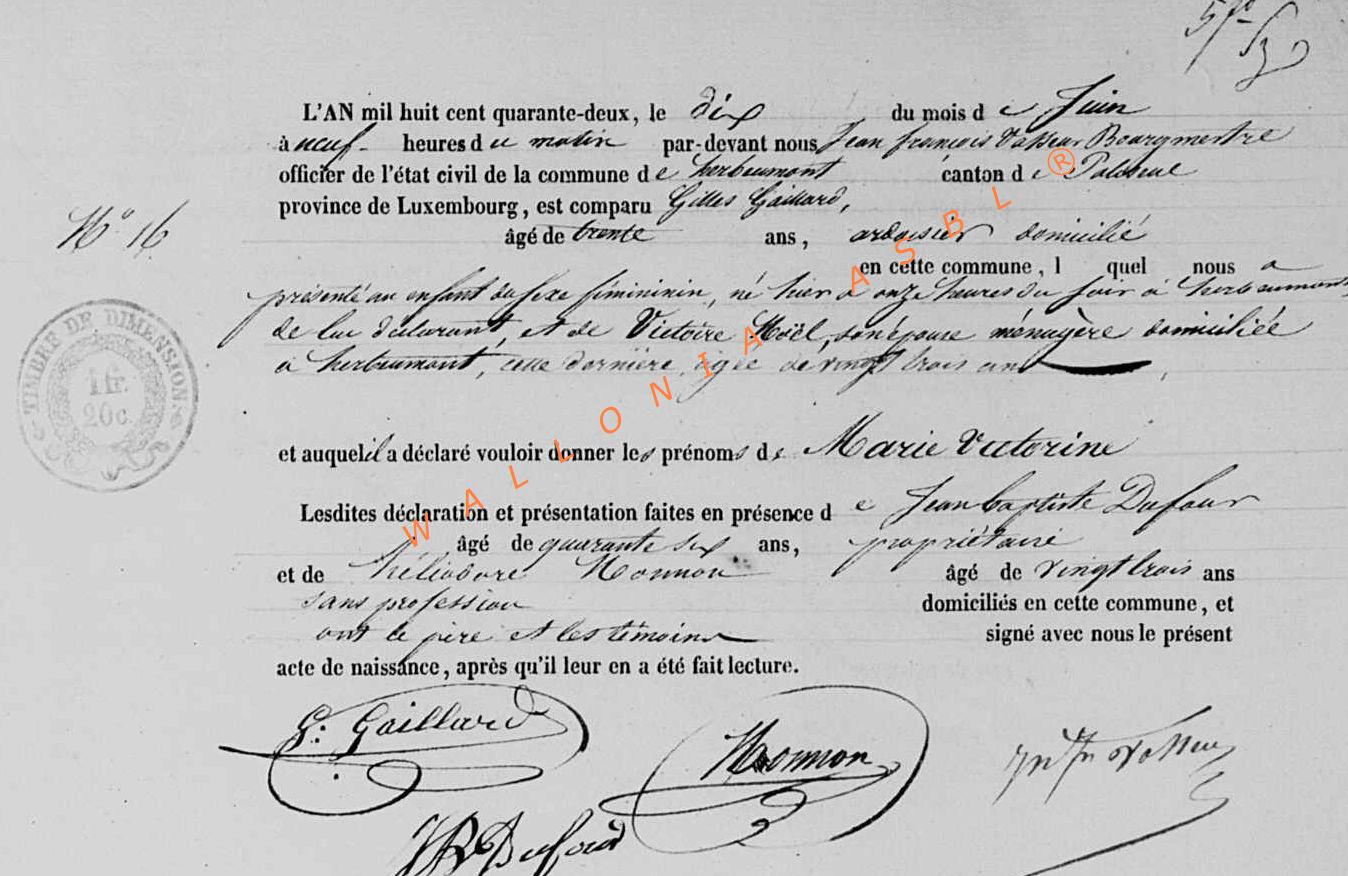 N° 16
TIMBRE DE DIMENSION
1 fr.
20c.
L'AN mil huit cent quarante-deux, le dix du mois de Juin
à neuf heures du matin par-devant nous Jean françois Vasseur Bourgmestre
officier de l'état civil de la commune de herbeumont canton de Paliseul
province de Luxembourg, est comparu Gilles Gaillard,
âgé de trente ans, ardoisier domicilié
en cette commune, l quel nous a
présenté un enfant du sexe fémininin, né hier à onze heures du soir à herbeumont
de lui déclarant, et de Victoire Noël, son épouse ménagère domiciliée
à herbeumont, cette dernière âgée de vingt trois ans
et auquel il a déclaré vouloir donner les prénoms de Marie Victorine
Lesdites déclaration et présentation faites en présence de Jean baptiste Dufour
âgé de quarante six ans, propriétaire
et de héliodore Nonnon âgé de vingt trois ans
sans profession domiciliés en cette commune, et
ont le père et les témoins signé avec nous le présent
acte de naissance, après qu'il leur en a été fait lecture.
G: Gaillard
Nonnon
JB Dufour
WALLONIA ASBL ®